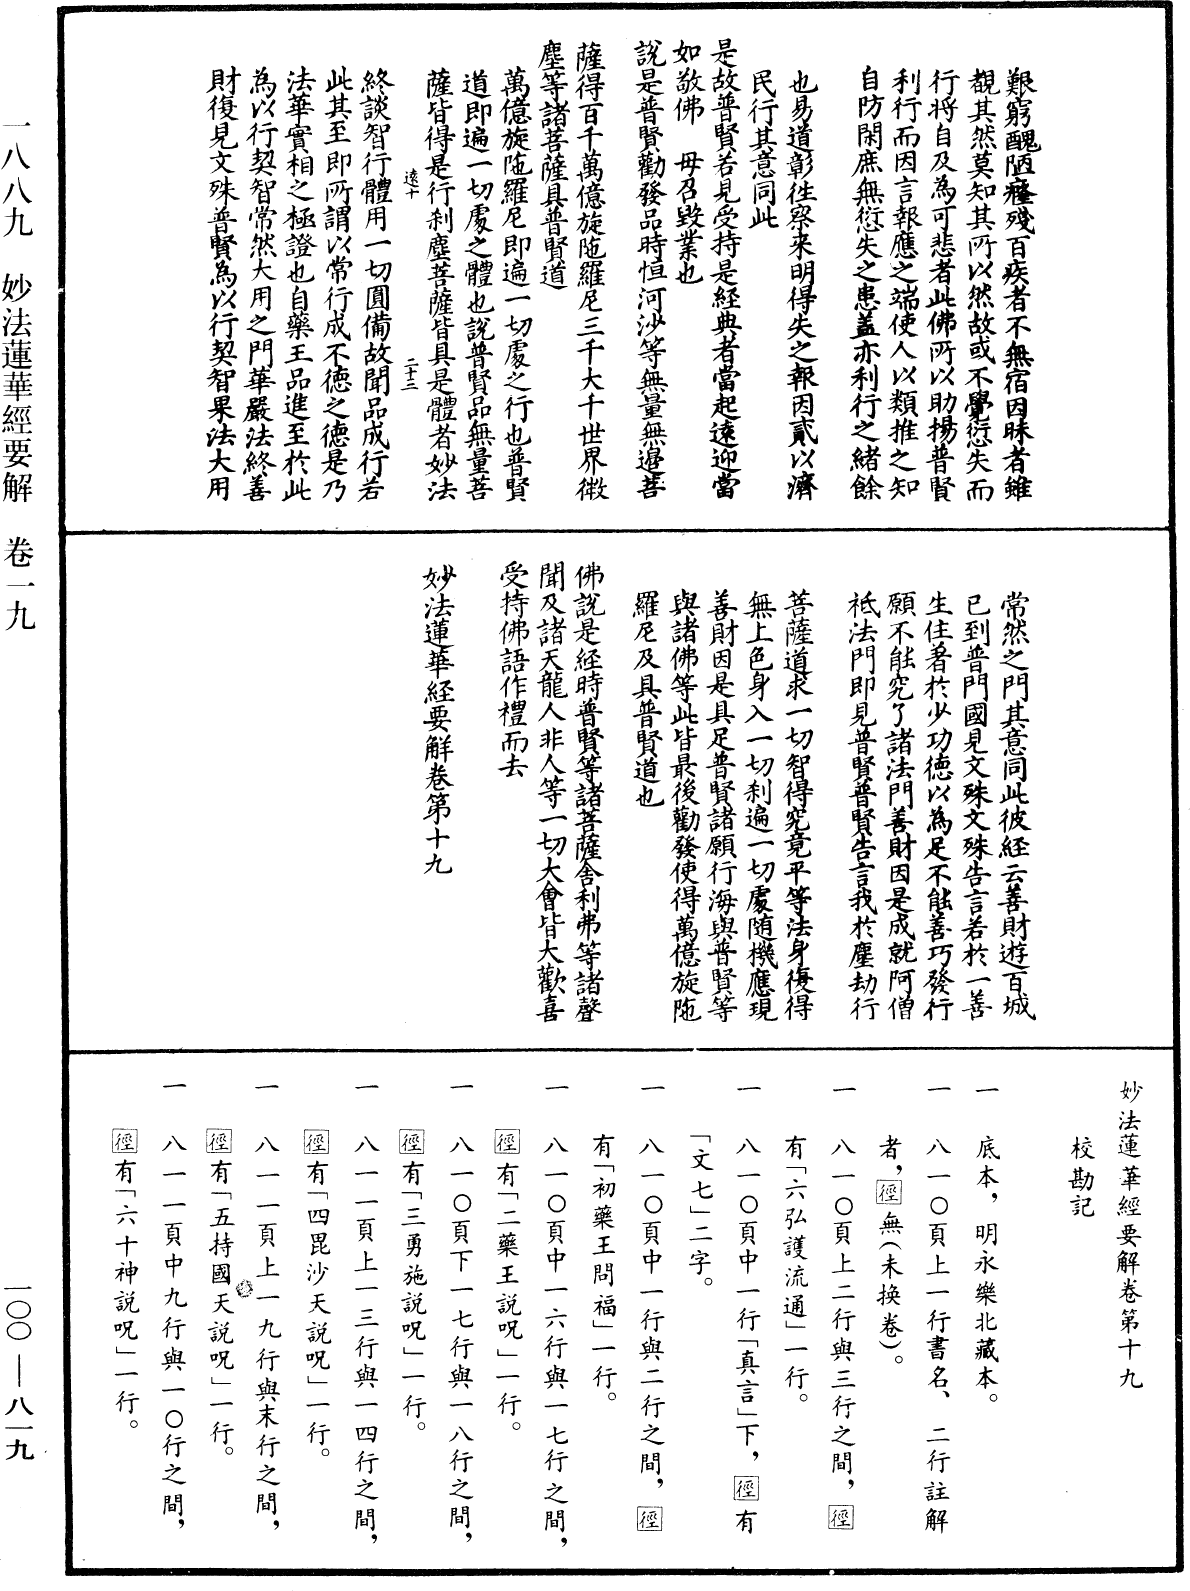 艱窮醜陋癃殘百疾者不無宿因昧者雖
覩其然莫知其所以然故或不覺愆失而
行將自及為可悲者此佛所以助揚普賢
利行而因言報應之端使人以類推之知
自防閑庶無愆失之患蓋亦利行之緒餘
也易道彰往察來明得失之報因貳以濟
民行其意同此
是故普賢若見受持是經典者當起遠迎當
如敬佛　毋召毀業也
說是普賢勸發品時恒河沙等無量無邊菩
薩得百千萬億旋陁羅尼三千大千世界微
塵等諸菩薩具普賢道
萬億旋陁羅尼即遍一切處之行也普賢
道即遍一切處之體也說普賢品無量菩
薩皆得是行剎塵菩薩皆具是體者妙法
遠十　二十三
終談智行體用一切圓備故聞品成行若
此其至即所謂以常行成不德之德是乃
法華實相之極證也自藥王品進至於此
為以行契智常然大用之門華嚴法終善
財復見文殊普賢為以行契智果法大用
常然之門其意同此彼經云善財遊百城
已到普門國見文殊文殊告言若於一善
生住著於少功德以為足不能善巧發行
願不能究了諸法門善財因是成就阿僧
祇法門即見普賢普賢告言我於塵劫行
菩薩道求一切智得究竟平等法身復得
無上色身入一切剎遍一切處隨機應現
善財因是具足普賢諸願行海與普賢等
與諸佛等此皆最後勸發使得萬億旋陁
羅尼及具普賢道也
佛說是経時普賢等諸菩薩舍利弗等諸聲
聞及諸天龍人非人等一切大會皆大歡喜
受持佛語作禮而去
妙法蓮華経要解卷第十九
妙法蓮華經要解卷第十九
校勘記
一　底本，明永樂北藏本。
一　八一〇頁上一行書名、二行註解
者，徑無(未換卷)。
一　八一〇頁上二行與三行之間，徑
有「六弘護流通」一行。
一　八一〇頁中一行「真言」下，徑有
「文七」二字。
一　八一〇頁中一行與二行之間，徑
有「初藥王問福」一行。
一　八一〇頁中一六行與一七行之間，
徑有「二藥王說呪」一行。
一　八一〇頁下一七行與一八行之間，
徑有「三勇施說呪」一行。
一　八一一頁上一三行與一四行之間，
徑有「四毘沙天說呪」一行。
一　八一一頁上一九行與末行之間，
徑有「五持國天說呪」一行。
一　八一一頁中九行與一〇行之間，
徑有「六十神說呪」一行。
一八八九　妙法蓮華經要解　卷一九
一〇〇—八一九